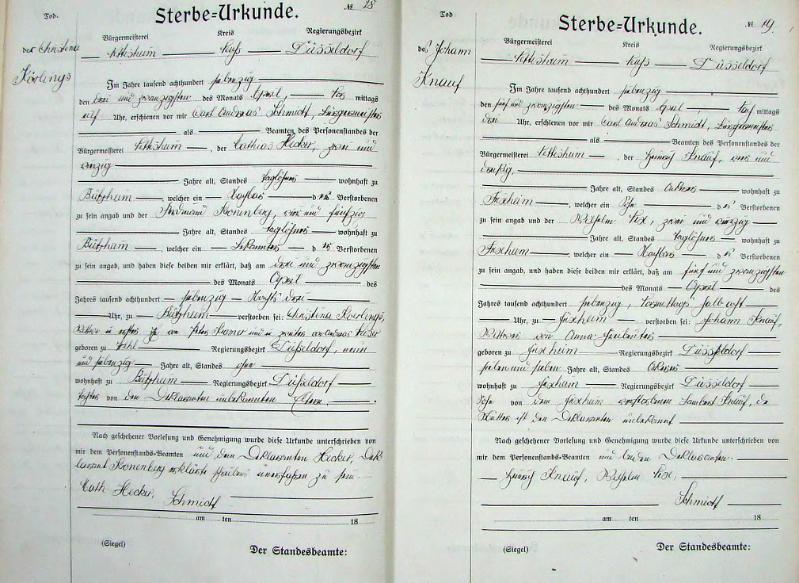 Tod.
Sterbe=Urkunde.
№ 18
des Christina
Körlings
Bürgermeisterei Kreis Regierungsbezirk
Nettesheim Neuß Düsseldorf
Im Jahre tausend achthundert siebenzig
den drei und zwanzigsten des Monats April, mittags
Uhr, erschienen vor mir Carl Andreas Schmidt, Bürgermeister
als Beamten des Personenstandes der
Bürgermeisterei Nettesheim, der Mathias Hecker, zwei und
vierzig
Jahre alt, Standes Taglöhner wohnhaft zu
Bützheim, welcher ein Nachbar d Verstorbenen
zu sein angab und der Kronenberg, vier und fünfzig
Jahre alt, Standes Taglöhner wohnhaft zu
Bützheim, welcher ein Bekannter d Verstorbenen
zu sein angab, und haben diese beiden mir erklärt, daß am drei und zwanzigsten
des Monats April des
Jahres tausend achthundert siebenzig Nachts drei
Uhr, zu Bützheim verstorben sei: Christina Koerlings,
geboren zu Regierungsbezirk Düsseldorf, neun
und siebenzig Jahre alt, Standes ohne
wohnhaft zu Bützheim Regierungsbezirk Düsseldorf
Tochter von den Deklaranten unbekannten Eltern.
Nach geschehener Vorlesung und Genehmigung wurde diese Urkunde unterschrieben von
mir dem Personenstands=Beamten und dem Deklaranten Hecker, Dekl
arant Kronenberg erklärte Schreibens unerfahren zu sein
Math Hecker, Schmidt
am ten 18
(Siegel) Der Standesbeamte:
Tod.
Sterbe=Urkunde.
№ 19.
des Johann
Knauf
Bürgermeisterei Kreis Regierungsbezirk
Nettesheim Neuß Düsseldorf
Im Jahre tausend achthundert siebenzig
den fünf und zwanzigsten des Monats April mittags
Uhr, erschienen vor mir Carl Andreas Schmidt, Bürgermeister
als Beamten des Personenstandes der
Bürgermeisterei Nettesheim, der Heinrich Knauf, und
dreißig
Jahre alt, Standes Ackerer wohnhaft zu
Frixheim, welcher ein Sohn d Verstorbenen
zu sein angab und der Wilhelm zwei und vierzig
Jahre alt, Standes Taglöhner wohnhaft zu
Frixheim, welcher ein Nachbar d Verstorbenen
zu sein angab, und haben diese beiden mir erklärt, daß am fünf und zwanzigsten
des Monats April des
Jahres tausend achthundert siebenzig, Vormittags halb acht
Uhr, zu Frixheim verstorben sei: Johann Knauf,
Wittwer von Anna
geboren zu Frixheim Regierungsbezirk Düsseldorf
sieben und sieben Jahre alt, Standes Ackerer
wohnhaft zu Frixheim Regierungsbezirk Düsseldorf
Sohn von dem zu Frixheim verstorbenen Lambert Knauf, die
Mutter ist den Deklaranten unbekannt
Nach geschehener Vorlesung und Genehmigung wurde diese Urkunde unterschrieben von
mir dem Personenstands=Beamten und beiden Deklaranten
Heinrich Knauf, Wilhelm
Schmidt
am ten 18
(Siegel) Der Standesbeamte: